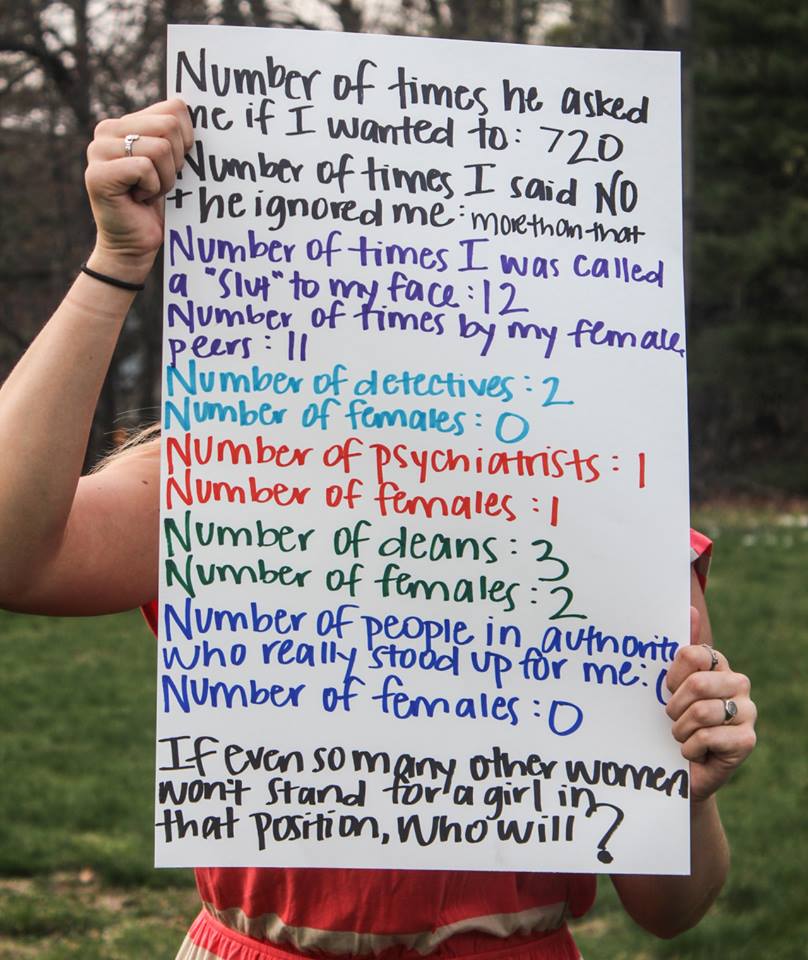 Number of times he asked
me if I wanted to: 720
Number of times I said NO
+ he ignored me: more than that
Number of times I was called
a "slut" to my face: 12
Number of times by my female
peers: 11
Number of detectives: 2
Number of females: 0
Number of psychiatrists: 1
Number of females: 1
Number of deans: 3
Number of females: 2
Number of people in authority
who really stood up for me: 0
Number of females: 0
If even so many other women
won't stand for a girl in
that position, who will?